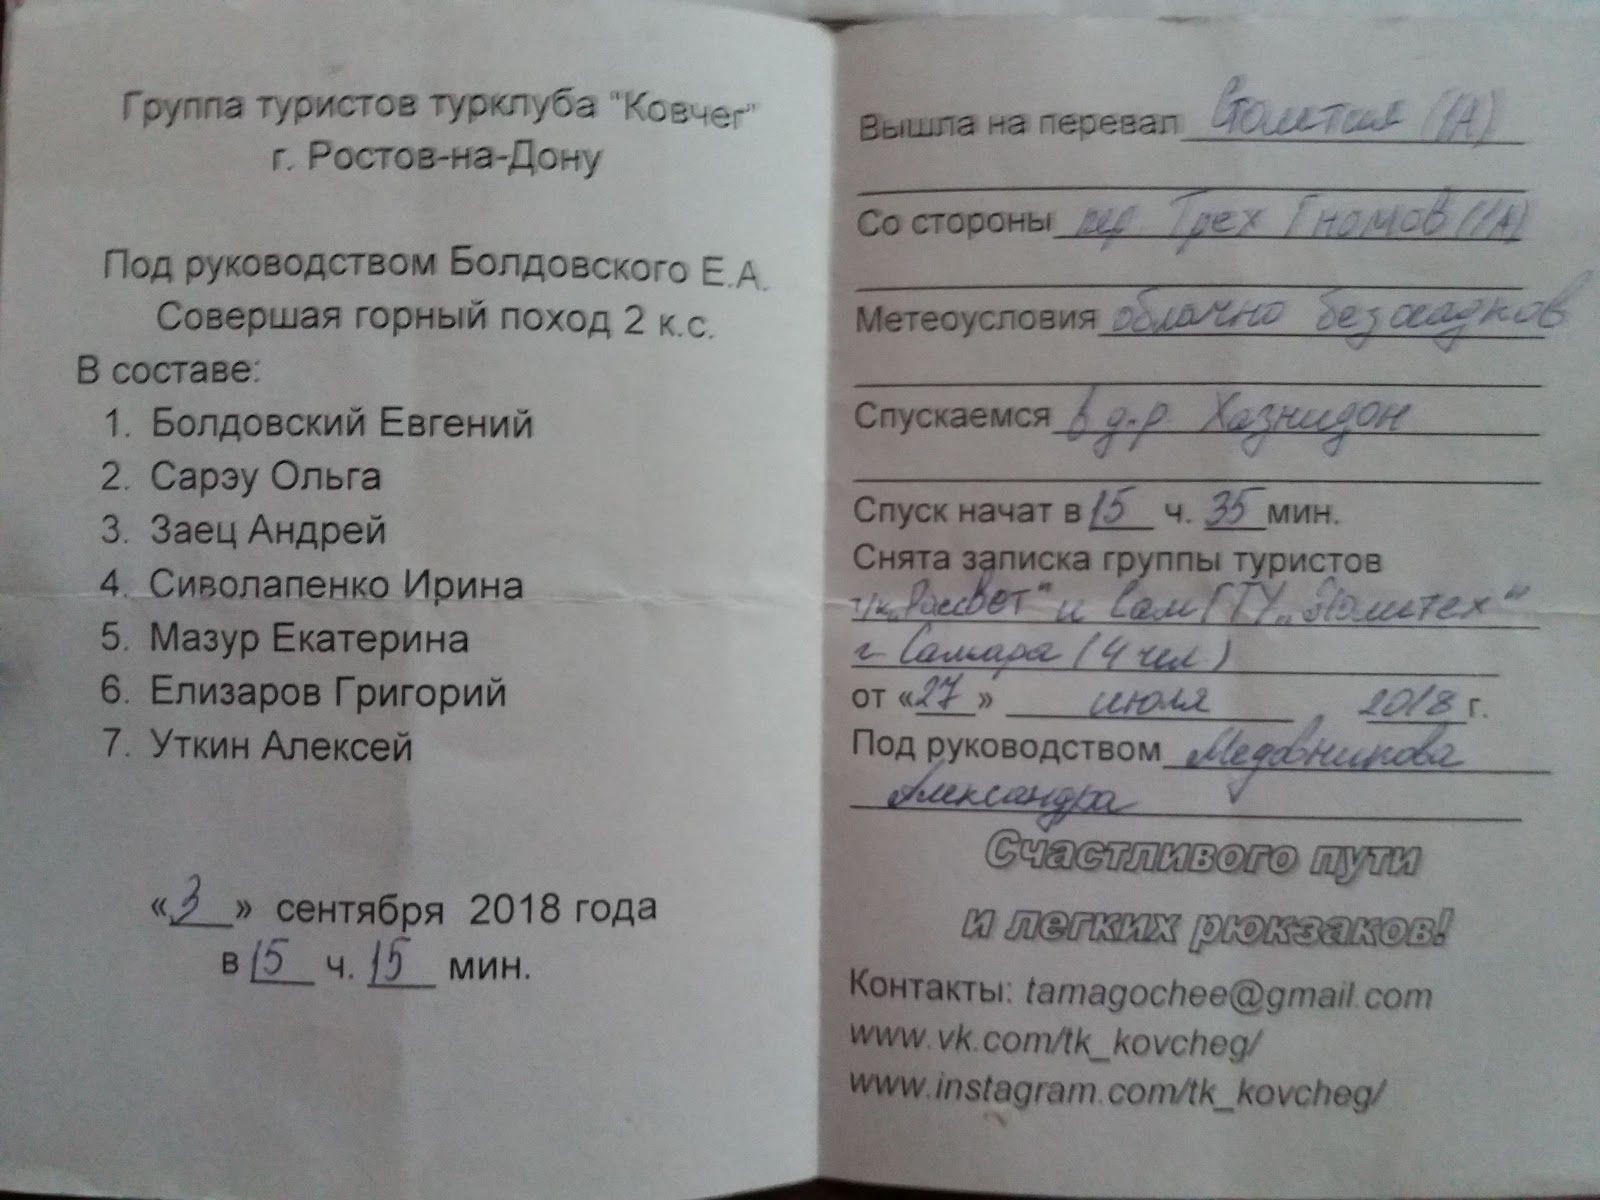 Группа туристов турклуба "Ковчег"
г. Ростов-на-Дону
Под руководством Болдовского Е.А.
Совершая горный поход 2 к.с.
В составе:
1. Болдовский Евгений
2. Сарэу Ольга
3. Заец Андрей
4. Сиволапенко Ирина
5. Мазур Екатерина
6. Елизаров Григорий
7. Уткин Алексей
«3» сентября 2018 года
в 15 ч. 15 мин.
Вышла на перевал Столетия (1А)
Со стороны пер. Трех Гномов (1А)
Метеоусловия облачно без осадков
Спускаемся в д.р. Хазнидон
Спуск начат в 15 ч. 35 мин.
Снята записка группы туристов
т/к „Рассвет" и СамГТУ „Политех"
г. Самара (4 чел.)
от «27» июля 2018 г.
Под руководством Медовникова
Александра
Счастливого пути
и легких рюкзаков!
Контакты: tamagochee@gmail.com
www.vk.com/tk_kovcheg/
www.instagram.com/tk_kovcheg/